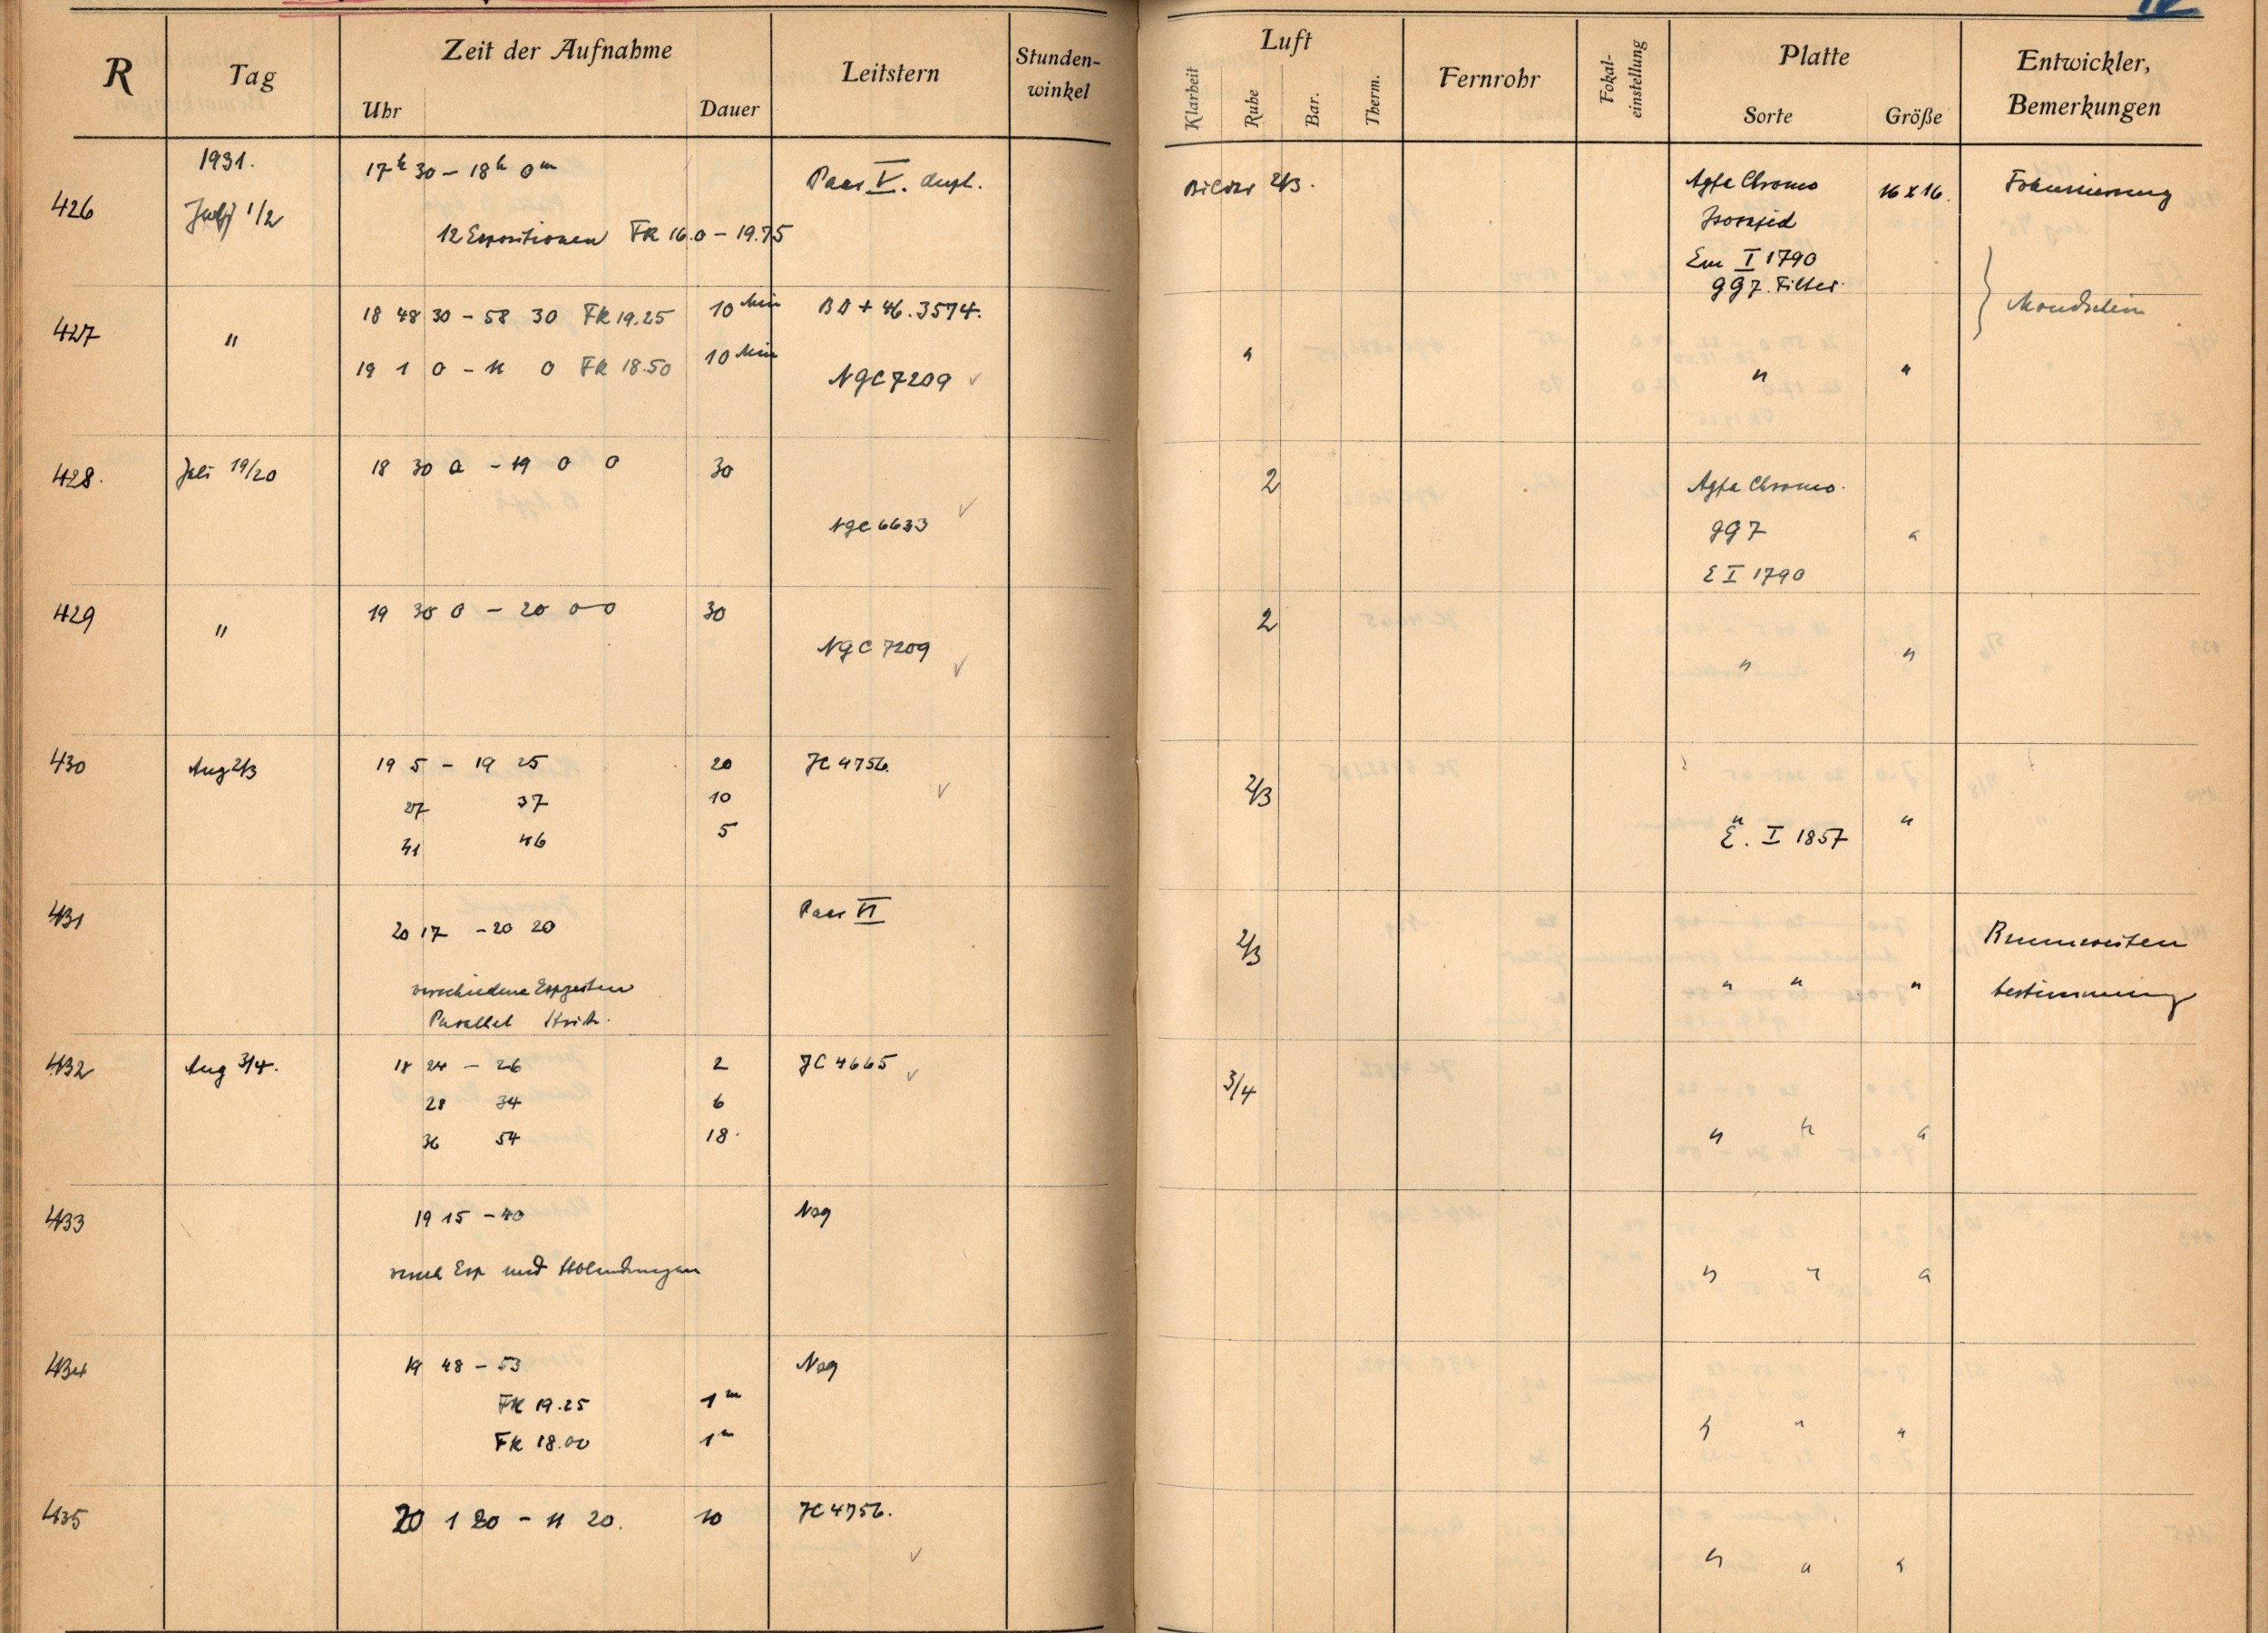 R Tag Zeit der Aufnahme Leitstern Stunden-winkel Luft Fernrohr Fokal-einstellung Platte Entwickler, Bemerkungen
Uhr Dauer Klarheit Ruhe Bar. Therm. Sorte Größe
1931.
426 Juli 1/2 17h 30 – 18h 0m Paar V. dupl. Bilder 2/3. Agfa Chromo 16 x 16. Fokussierung
12 Expositionen FK 16.0 – 19.75 Isorapid
Em I 1790
GG7. Filter
427 " 18 48 30 – 58 30 FK 19.25 10 Min BD + 46.3574. Mondschein
19 1 0 – 11 0 FK 18.50 10 Min NGC 7209 ✓ " " "
428. Juli 19/20 18 30 0 – 19 0 0 30 2 Agfa Chromo.
NGC 6633 ✓ GG 7 "
E I 1790
429 " 19 30 0 – 20 0 0 30 2
NGC 7209 ✓ " "
430 Aug 2/3 19 5 – 19 25 20 JC 4756. ✓ 2/3
27 37 10 " "
41 46 5 E. I 1857
431 20 17 – 20 20 Paar VI 2/3 Brennweiten
verschiedene Expzeiten " " " bestimmung
Parallel
432 Aug 3/4. 18 24 – 26 2 JC 4665 ✓ 3/4
28 34 6
36 54 18. " " "
433 19 15 – 40
versch Exp und Abblendungen " " "
434 19 48 – 53
FK 19.25 1m
FK 18.00 1m " " "
435 20 1 20 – 11 20. 10 JC 4756. ✓ " " "